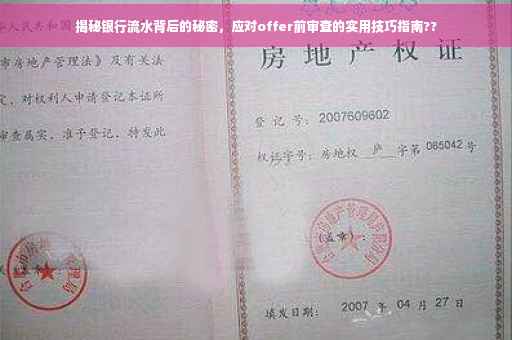 揭秘银行流水背后的秘密，应对offer前审查的实用技巧指南??
华人民共和国
市房地产管理法》及有关法
定，对权利人申请登记本证所
审查属实，准予登记，特发此
房地产权证
登记号：2007609602
权证字号：房地权 庐 字第 085042 号
(盖章)：
填发日期： 2007 年 04 月 27 日